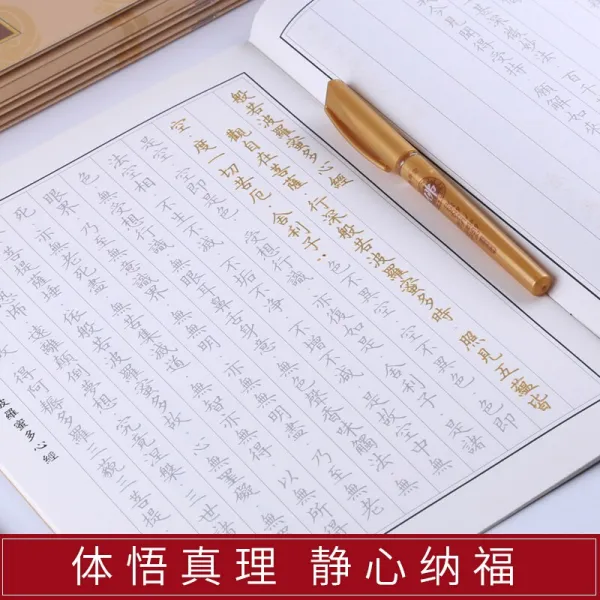 般若波羅蜜多心經
觀自在菩薩．行深般若波羅蜜多時．照見五蘊皆
空．度一切苦厄．舍利子：色不異空．空不異色．色即
是空．空即是色．受想行識．亦復如是．舍利子．是諸
法空相．不生不滅．不垢不淨．不增不減．是故空中無
色．無受想行識．無眼耳鼻舌身意．無色聲香味觸法．無
眼界．乃至無意識界．無無明．亦無無明盡．乃至無老
死．亦無老死盡．無苦集滅道．無智亦無得．以無所得
菩提薩埵．依般若波羅蜜多故．心無罣礙
怖．遠離顛倒夢想．究竟涅槃．三世諸
故．得阿耨多羅三藐三菩提
波羅蜜多心經
微妙法 百千
今見聞得受持 願解如來
佛
体悟真理 静心纳福